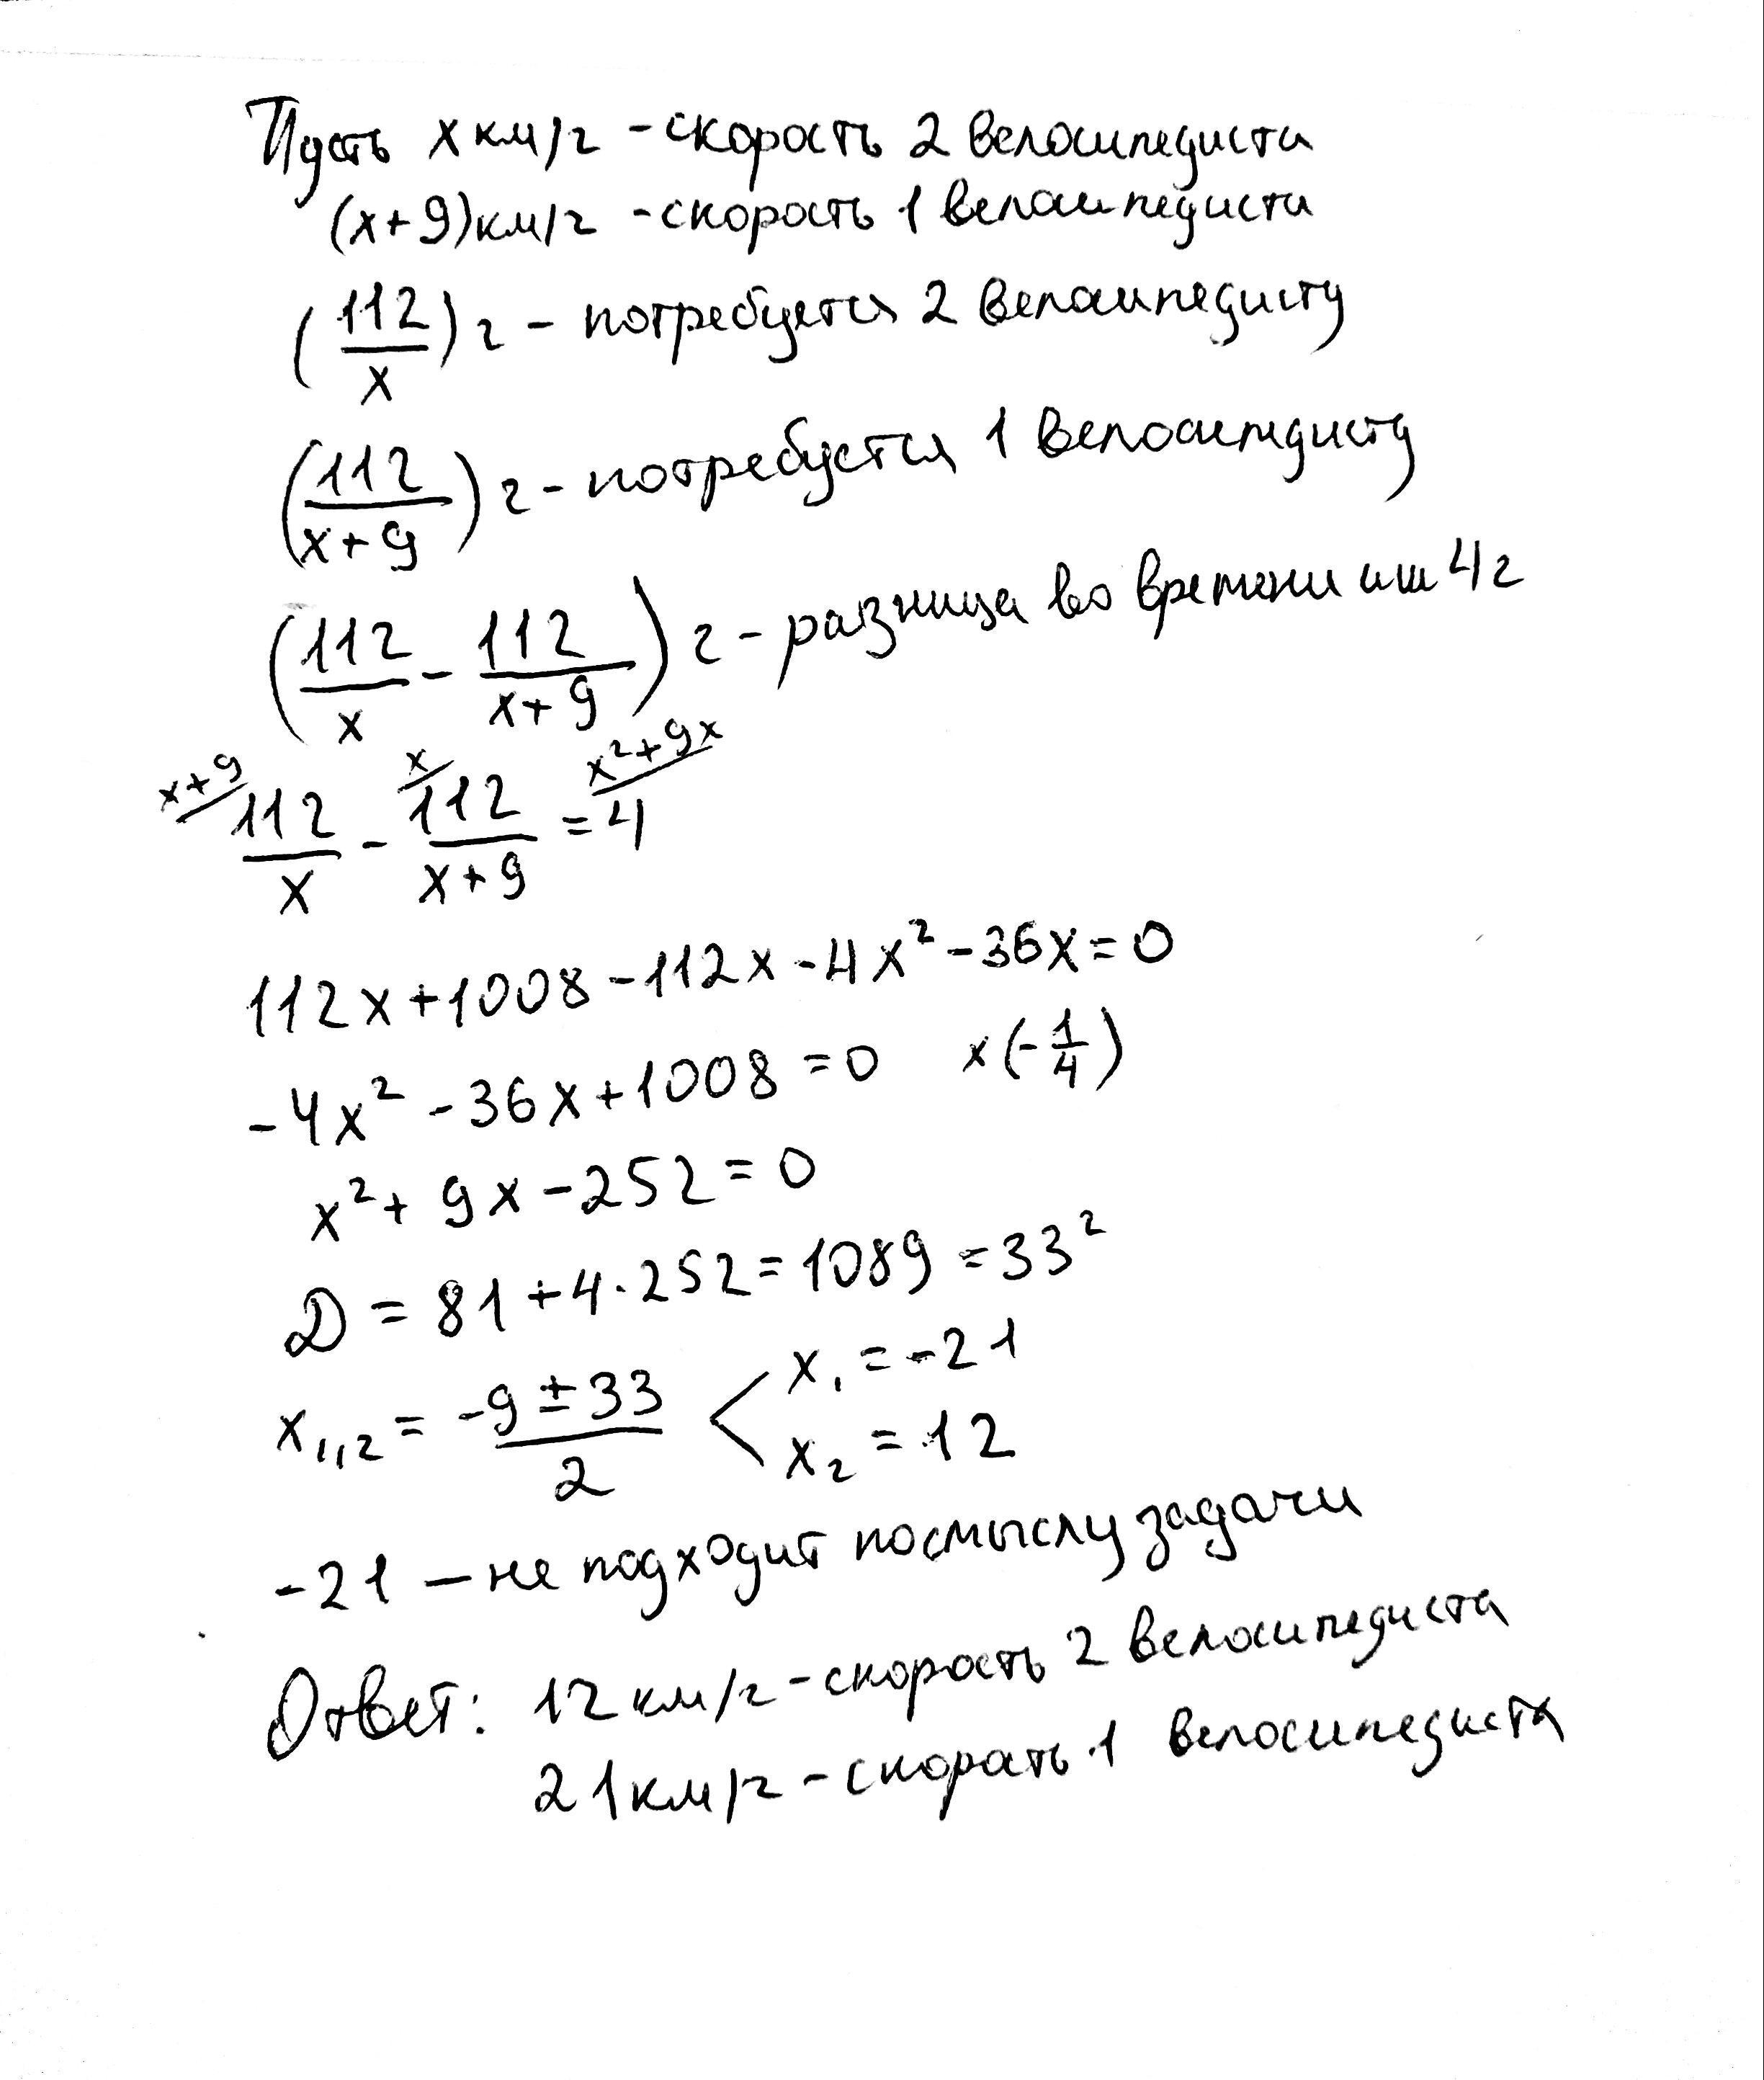 Пусть x км/ч - скорость 2 велосипедиста
(x+9)км/ч - скорость 1 велосипедиста
(112/x) ч - потребуется 2 велосипедисту
(112/(x+9)) ч - потребуется 1 велосипедисту
(112/x - 112/(x+9)) ч - разница во времени или 4 ч
x+9/ 112/x - x/ 112/(x+9) = x²+9x/ 4
112x+1008-112x-4x²-36x=0
-4x²-36x+1008=0 x(-1/4)
x²+9x-252=0
D=81+4·252=1089=33²
x₁,₂ = (-9±33)/2 < x₁=-21
x₂=12
-21 — не подходит по смыслу задачи
Ответ: 12 км/ч - скорость 2 велосипедиста
21 км/ч - скорость 1 велосипедиста